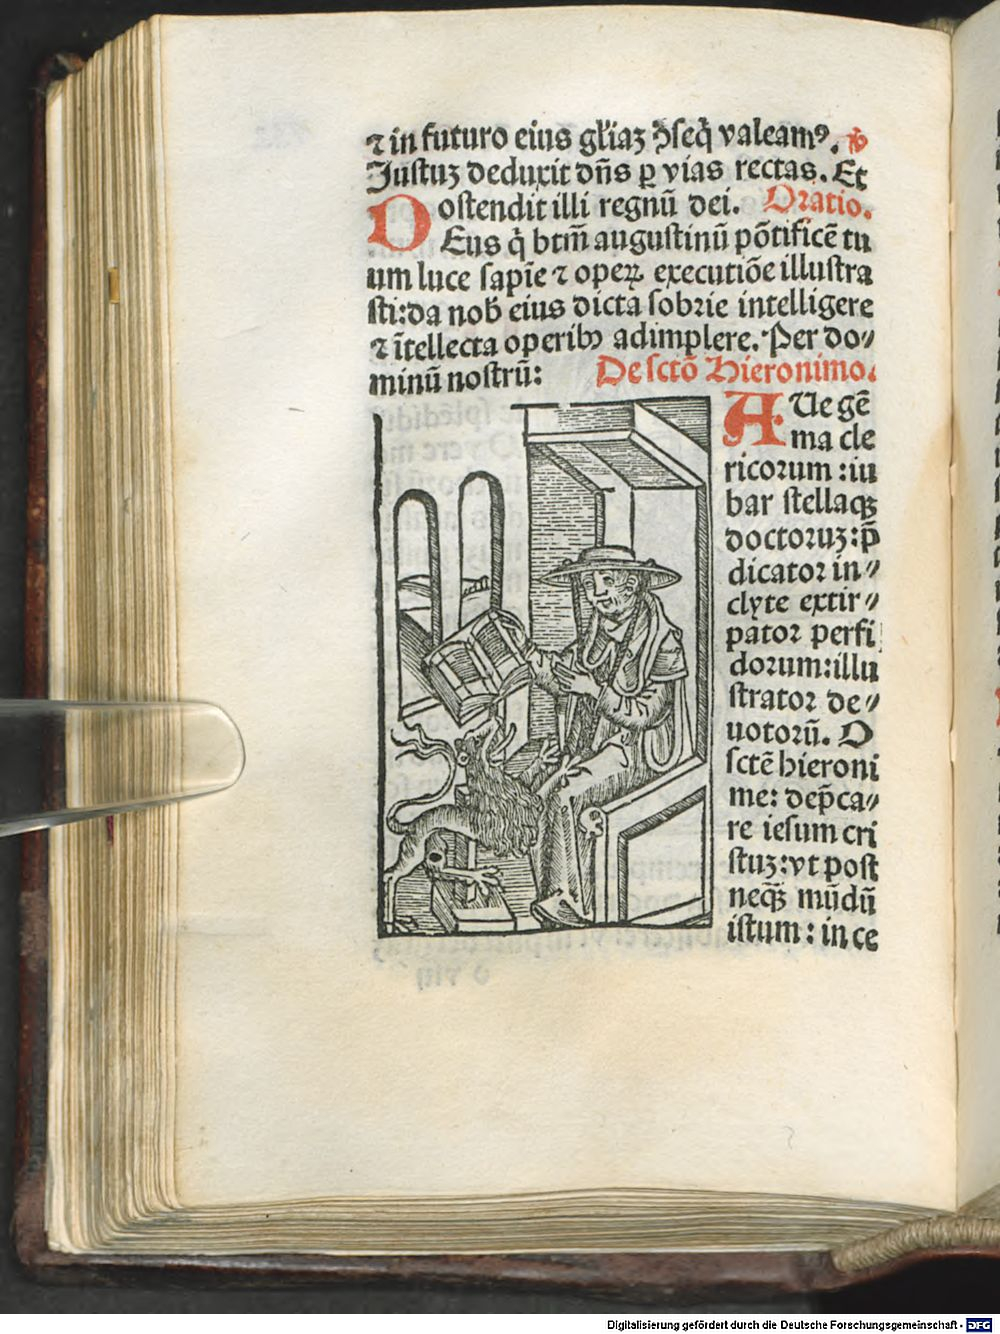 ⁊ in futuro eius gl'iaꝫ ꝯseq̄ valeamꝰ. ℣
Justuꝫ deduxit dn̄s ꝑ vias rectas. Et
ostendit illi regnū dei. Oratio.
DEus q̄ btm̄ augustinū pōtificē tu
um luce sapīe ⁊ opeꝝ executiōe illustra
sti:da nob̄ eius dicta sobꝛie intelligere
⁊ ītellecta operibꝰ adimplere. Per do⸗
minū nostrū: De sctō Hieronimo.
AUe gē
ma cle
ricorum :iu
bar stellaqꝫ
doctoꝛuꝫ:p̄
dicatoꝛ in⸗
clyte extir⸗
patoꝛ perfi
doꝛum:illu
stratoꝛ de⸗
uotoꝛū. O
sctē hieroni
me: dep̄ca⸗
re iesum cri
stuꝫ:vt post
neqꝫ mūdū
istum : in ce
Digitalisierung gefördert durch die Deutsche Forschungsgemeinschaft - DFG